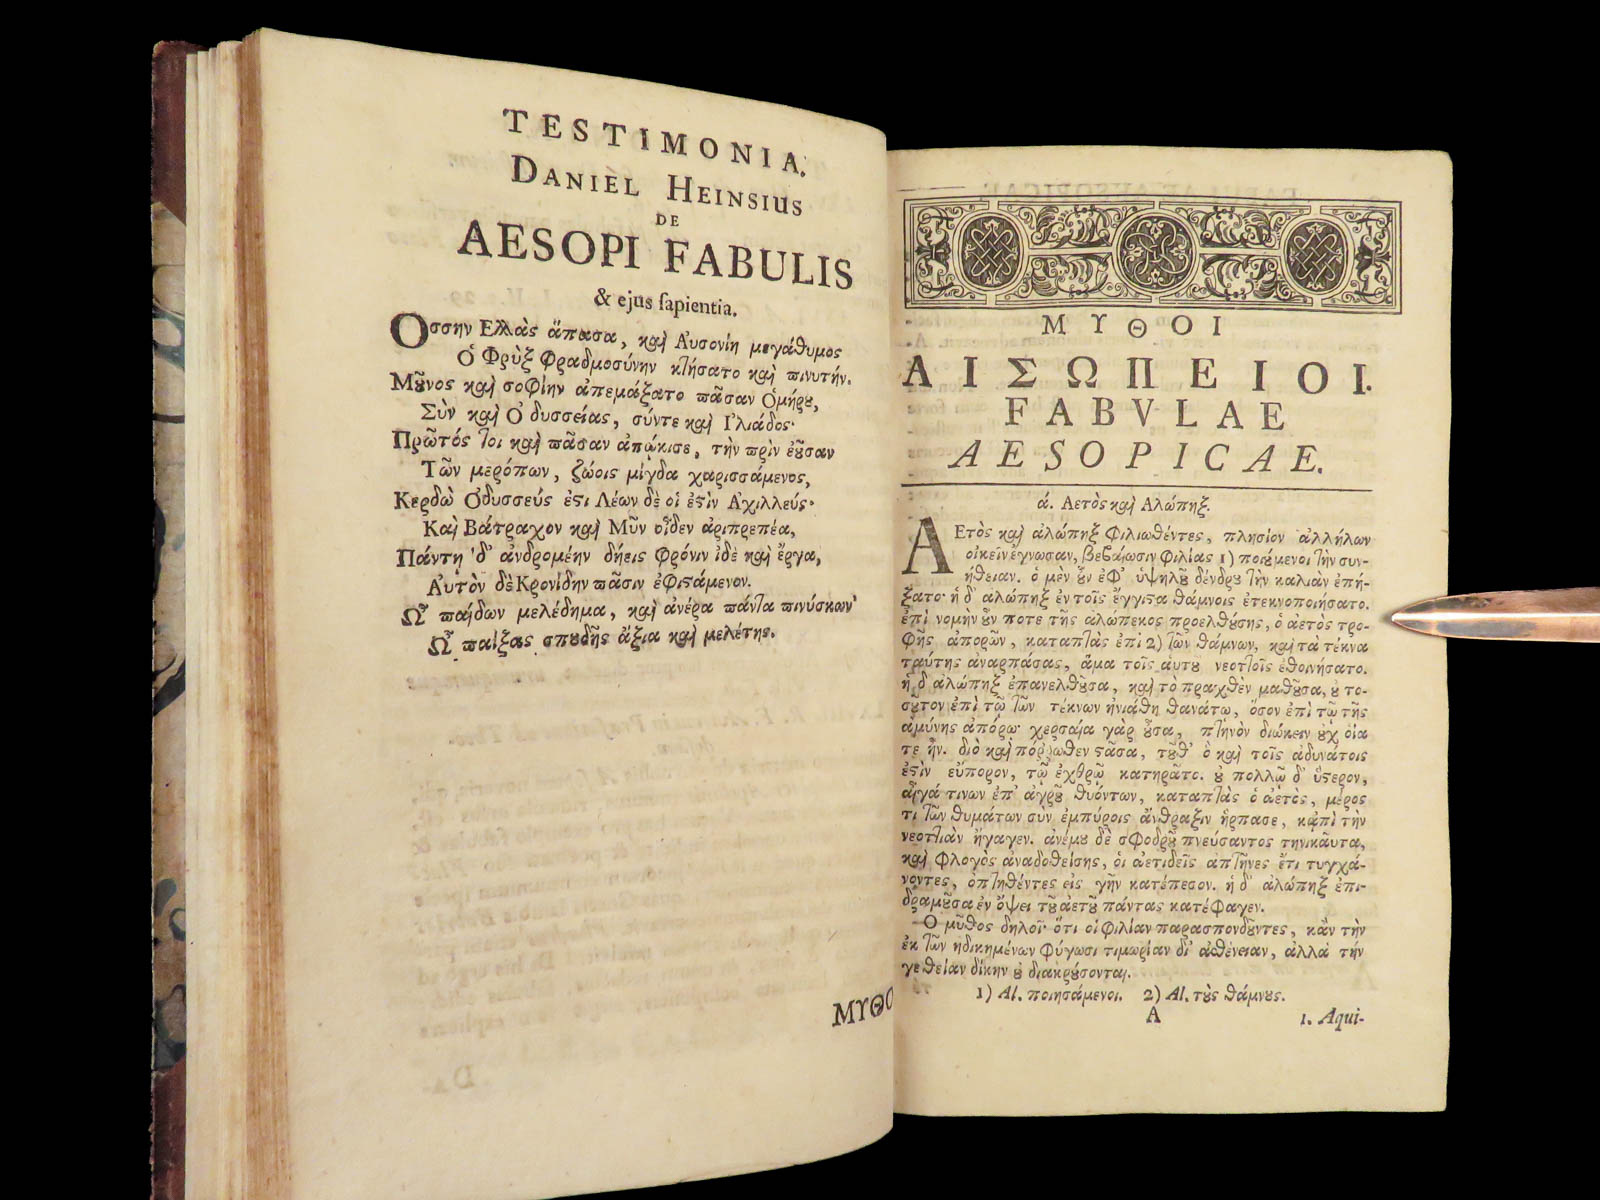 TESTIMONIA.
DANIEL HEINSIUS
DE
AESOPI FABULIS
& ejus ſapientia.
Οσσην Ελλὰς ἅπασα, καὶ Αὐσονίη μεγάθυμος
Ὁ Φρὺξ φραδμοσύνην κτήσατο καὶ πινυτήν.
Μοῦνος καὶ σοφίην ἀπεμάξατο πᾶσαν Ὁμήρου,
Σὺν καὶ Ὀδυσσείας, σύντε καὶ Ἰλιάδος·
Πρῶτός τοι καὶ πᾶσαν ἀπῴκισε, τὴν πρὶν ἐοῦσαν
Τῶν μερόπων, ζώοις μίγδα χαρισσάμενος,
Κερδὼ Ὀδυσσεύς ἐστι Λέων δὲ οἱ ἐστὶν Ἀχιλλεύς·
Καὶ Βάτραχον καὶ Μῦν οἶδεν ἀριπρεπέα,
Πάντη δ' ἀνδρομέην δήεις φρόνιν ἰδὲ καὶ ἔργα,
Αὐτὸν δὲ Κρονίδην πᾶσιν ἐφιστάμενον.
Ὦ παίδων μελέδημα, καὶ ἀνέρα πάντα πινύσκων
Ὦ παίξας σπουδῆς ἄξια καὶ μελέτης.
ΜΥΘΟ
ΜΥΘΟΙ
ΑΙΣΩΠΕΙΟΙ.
FABVLAE
AESOPICAE.
ά. Αετὸς καὶ Αλώπηξ.
ΑΕΤὸς καὶ ἀλώπηξ φιλιωθέντες, πλησίον ἀλλήλων
οἰκεῖν ἔγνωσαν, βεβαίωσιν φιλίας 1) ποιούμενοι τὴν συν-
ήθειαν. ὁ μὲν οὖν ἐφ' ὑψηλοῦ δένδρου τὴν καλιὰν ἐπή-
ξατο· ἡ δ' ἀλώπηξ ἐν τοῖς ἔγγιστα θάμνοις ἐτεκνοποιήσατο.
ἐπὶ νομὴν οὖν ποτε τῆς ἀλώπεκος προελθούσης, ὁ ἀετὸς τρο-
φῆς ἀπορῶν, καταπτὰς ἐπὶ 2) τῶν θάμνων, καὶ τὰ τέκνα
ταύτης ἀναρπάσας, ἅμα τοῖς αὑτοῦ νεοττοῖς ἐθοινήσατο.
ἡ δ' ἀλώπηξ ἐπανελθοῦσα, καὶ τὸ πραχθὲν μαθοῦσα, οὐ το-
σοῦτον ἐπὶ τῷ τῶν τέκνων ἠνιάθη θανάτω, ὅσον ἐπὶ τῷ τῆς
ἀμύνης ἀπόρῳ· χερσαία γὰρ οὖσα, πτηνὸν διώκειν οὐχ οἵα
τε ἦν. διὸ καὶ πόρρωθεν στᾶσα, τοῦθ' ὃ καὶ τοῖς ἀδυνάτοις
ἐστὶν εὔπορον, τῷ ἐχθρῷ κατηρᾶτο. οὐ πολλῷ δ' ὕστερον,
αἶγά τινων ἐπ' ἀγροῦ θυόντων, καταπτὰς ὁ ἀετὸς, μέρος
τι τῶν θυμάτων σὺν ἐμπύροις ἄνθραξιν ἥρπασε, κᾀπὶ τὴν
νεοττιὰν ἤγαγεν. ἀνέμου δὲ σφοδροῦ πνεύσαντος τηνικαῦτα,
καὶ φλογὸς ἀναδοθείσης, οἱ ἀετιδεῖς ἀπτῆνες ἔτι τυγχά-
νοντες, ὀπτηθέντες εἰς γῆν κατέπεσον. ἡ δ' ἀλώπηξ ἐπι-
δραμοῦσα ἐν ὄψει τοῦ ἀετοῦ πάντας κατέφαγεν.
Ο μῦθος δηλοῖ· ὅτι οἱ φιλίαν παρασπονδοῦντες, κἂν τὴν
ἐκ τῶν ἠδικημένων φύγωσι τιμωρίαν δι' ἀσθένειαν, ἀλλὰ τήν
γε θείαν δίκην οὐ διακρούσονται.
1) Al. ποιησάμενοι. 2) Al. τοὺς θάμνους.
A
1. Aqui-